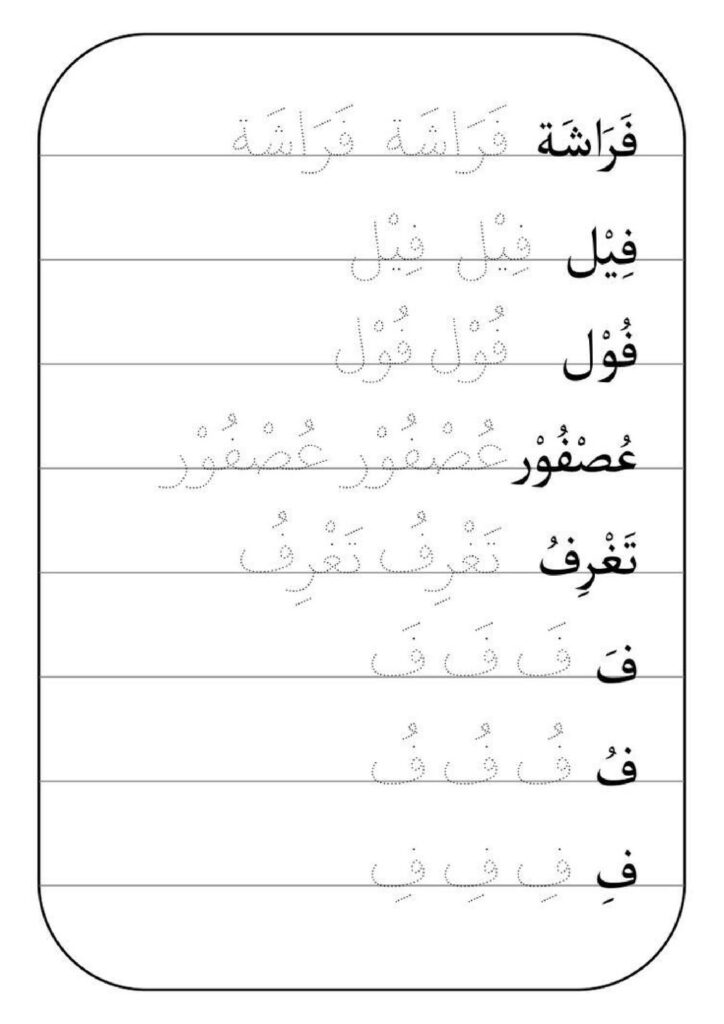 فَرَاشَة فَرَاشَة فَرَاشَة
فِيْل فِيْل فِيْل
فُوْل فُوْل فُوْل
عُصْفُوْر عُصْفُوْر عُصْفُوْر
تَغْرِفُ تَغْرِفُ تَغْرِفُ
فَ فَ فَ فَ
فُ فُ فُ فُ
فِ فِ فِ فِ